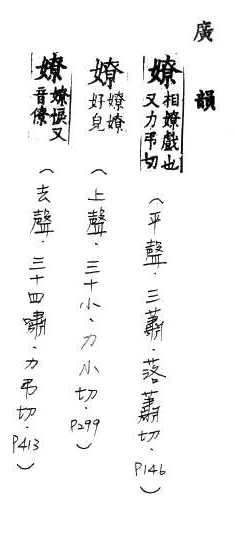 廣韻
嫽 相嫽戲也又力弔切
(平聲．三蕭．落蕭切．P146)
嫽 嫽嫽好皃
(上聲．三十小．力小切．P299)
嫽 嫽悵又音僚
(去聲．三十四嘯．力弔切．P413)